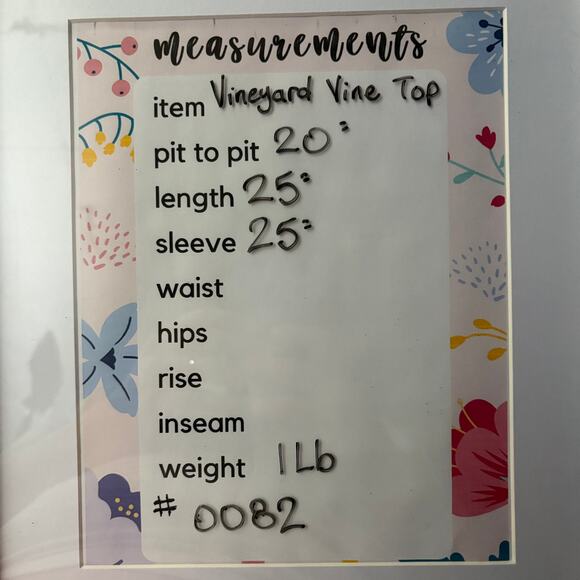 measurements
item Vineyard Vine Top
pit to pit 20"
length 25"
sleeve 25"
waist
hips
rise
inseam
weight 1 Lb
# 0082